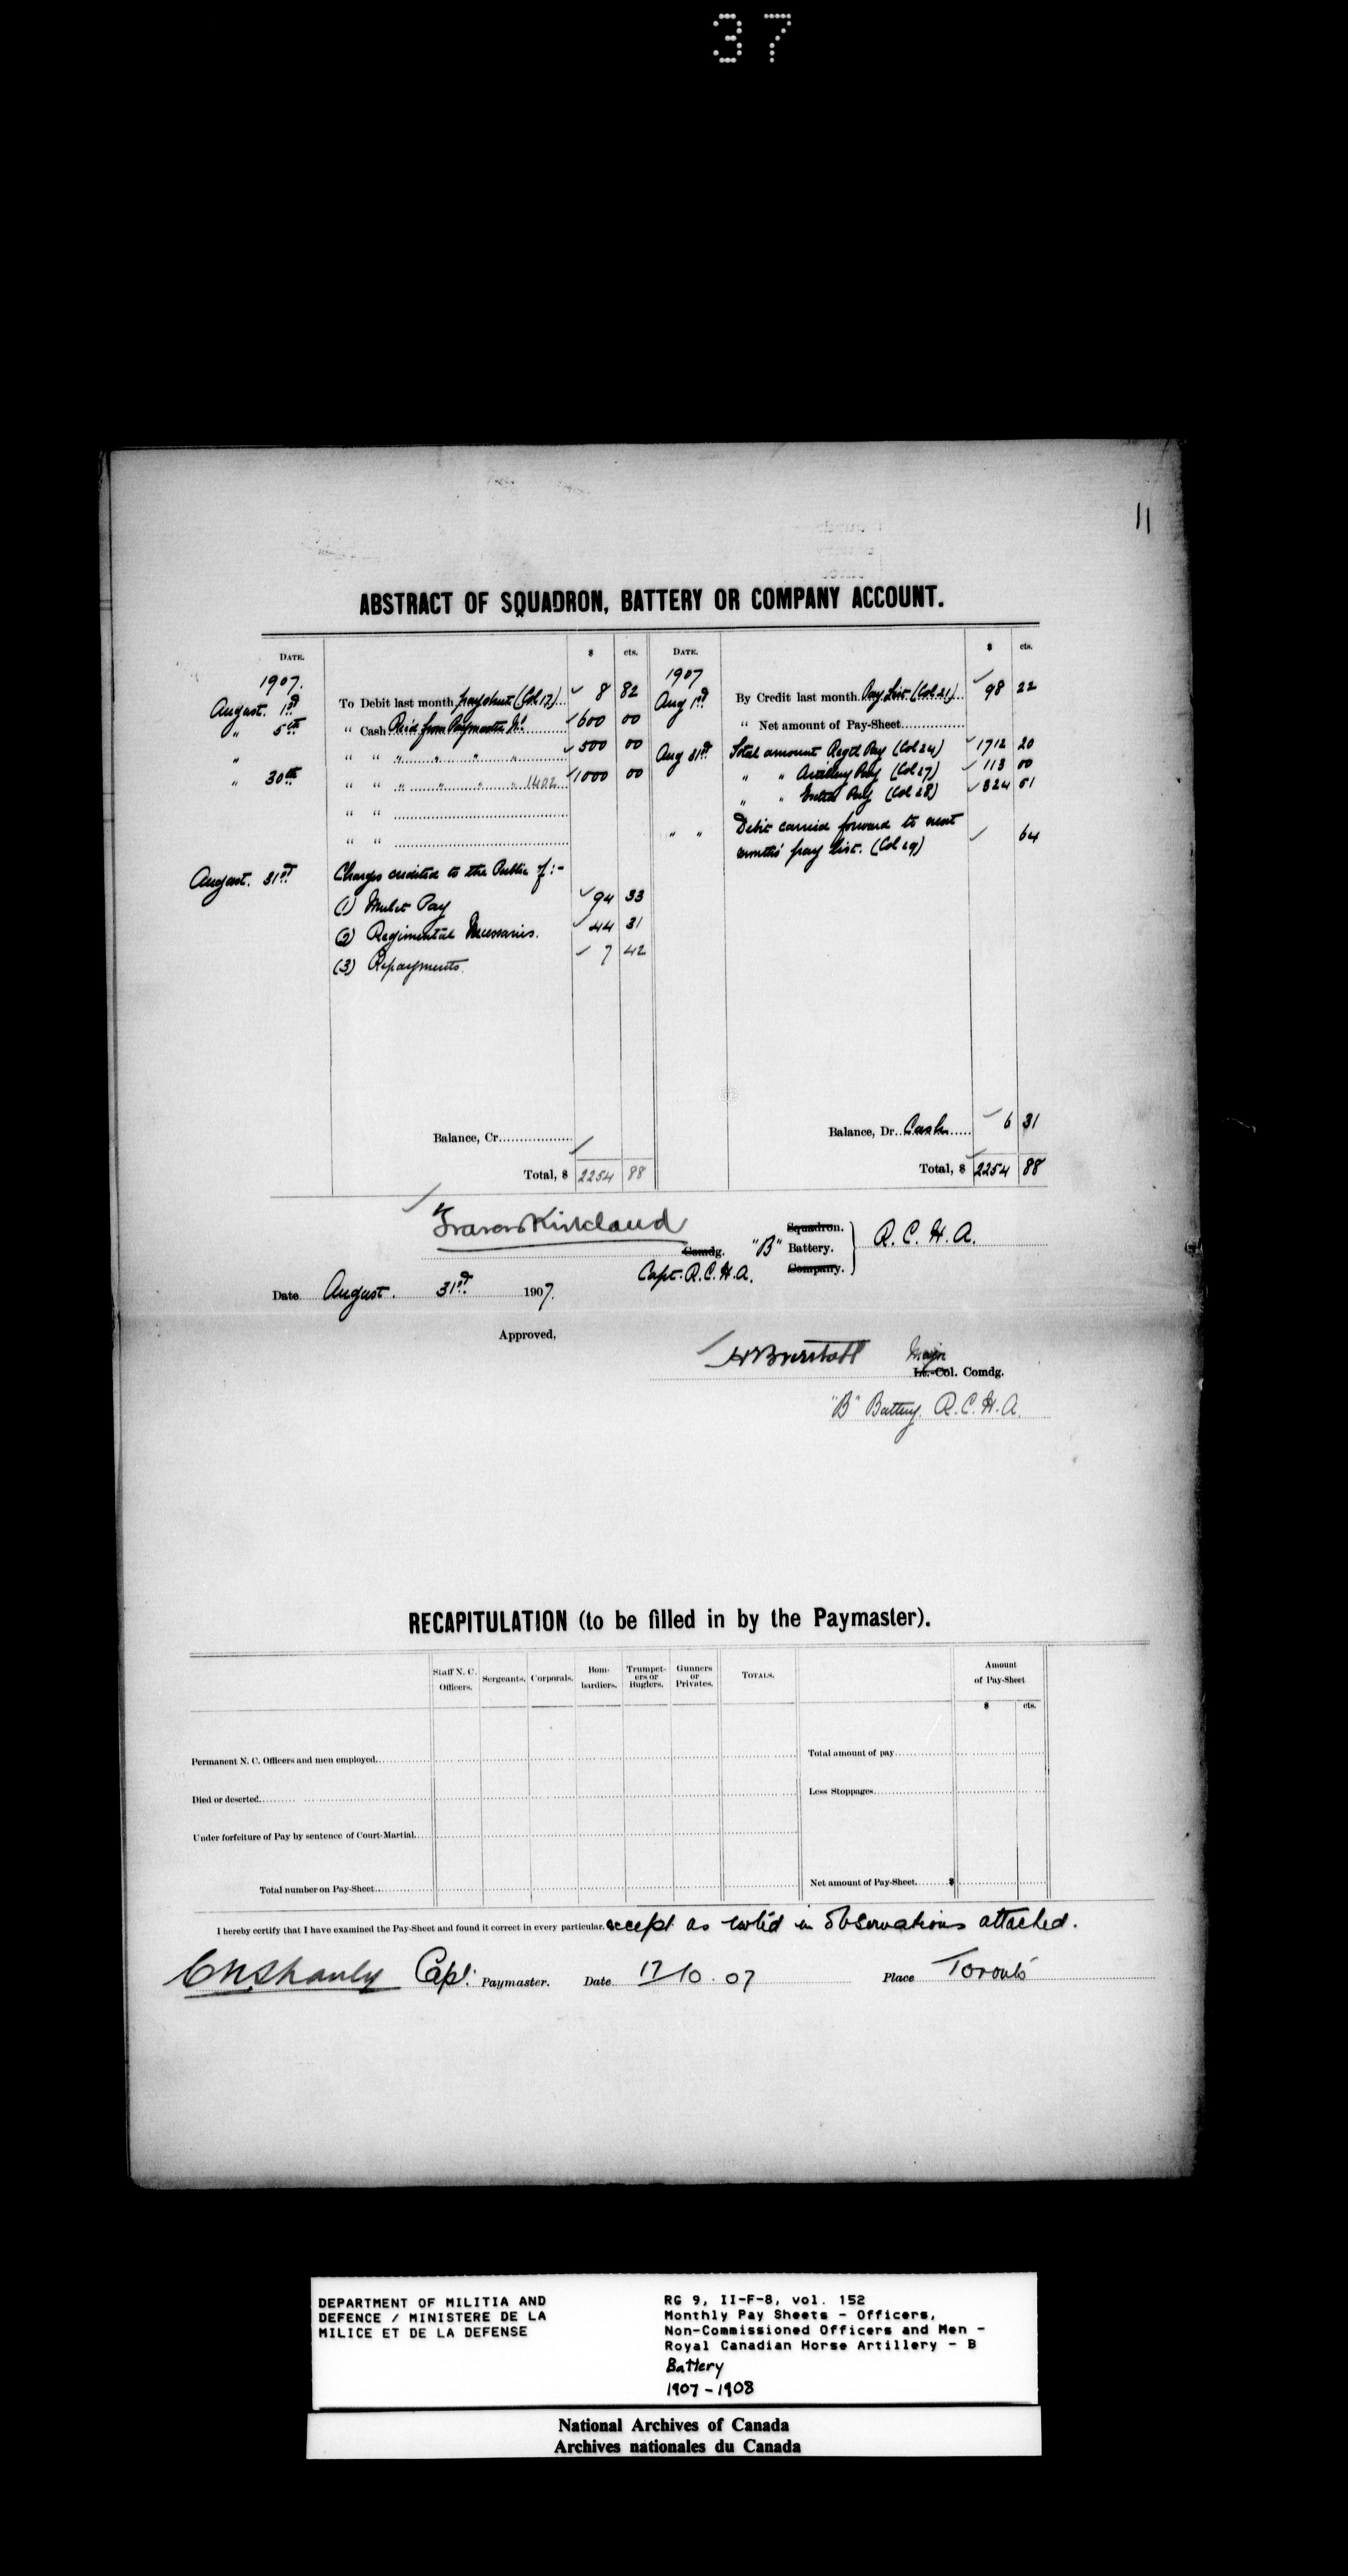 37
11
ABSTRACT OF SQUADRON, BATTERY OR COMPANY ACCOUNT.
DATE. $ cts. DATE. $ cts.
1907. 1907
August. 1st To Debit last month paysheet (Col 17) 8 82 Aug 1st By Credit last month Pay List (Col 21) 98 22
" 5th " Cash Recd from Paymaster 600 00 " Net amount of Pay-Sheet
" " " " " " " 500 00 Aug 31st Total amount Regtl Pay (Col 24) 1712 20
" 30th " " " " " " 1402 1000 00 " " Artillery Pay (Col 27) 113 00
" " " " Pay (Col 28) 324 51
" " " " Debit carried forward to next
months' pay list. (Col 29) 64
August. 31st Charges credited to the Public of:-
(1) Mulct Pay 94 33
(2) Regimental Necessaries. 44 31
(3) Repayments. 7 42
Balance, Cr. Balance, Dr. Cash 6 31
Total, $ 2254 88 Total, $ 2254 88
Kirkland
Comdg. "B" Squadron. Battery. Company. R.C.H.A.
Capt. R.C.H.A.
Date August. 31st 1907.
Approved,
Major
Lt.-Col. Comdg.
"B" Battery R.C.H.A.
RECAPITULATION (to be filled in by the Paymaster).
Staff N. C. Officers. Sergeants. Corporals. Bombardiers. Trumpeters or Buglers. Gunners or Privates. TOTALS. Amount of Pay-Sheet
$ cts.
Permanent N. C. Officers and men employed. Total amount of pay
Died or deserted. Less Stoppages
Under forfeiture of Pay by sentence of Court-Martial.
Total number on Pay-Sheet. Net amount of Pay-Sheet. $
I hereby certify that I have examined the Pay-Sheet and found it correct in every particular. except as noted in observations attached.
C N Shanly Capt. Paymaster. Date 17/10.07 Place Toronto
DEPARTMENT OF MILITIA AND
DEFENCE / MINISTERE DE LA
MILICE ET DE LA DEFENSE
RG 9, II-F-8, vol. 152
Monthly Pay Sheets - Officers,
Non-Commissioned Officers and Men -
Royal Canadian Horse Artillery - B
Battery
1907-1908
National Archives of Canada
Archives nationales du Canada